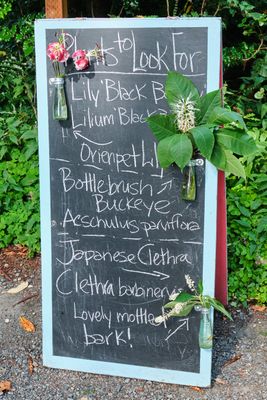 Plants to Look For
Lily 'Black B
Lilium 'Black
Orienpet Lily
Bottlebrush
Buckeye
Aeschulus parviflora
Japanese Clethra
Clethra barbinervis
Lovely mottle
bark!